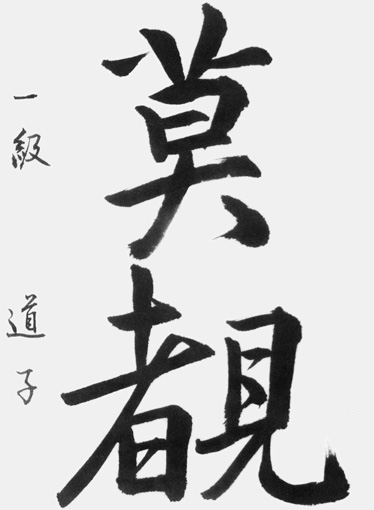 莫覩
一級 道子